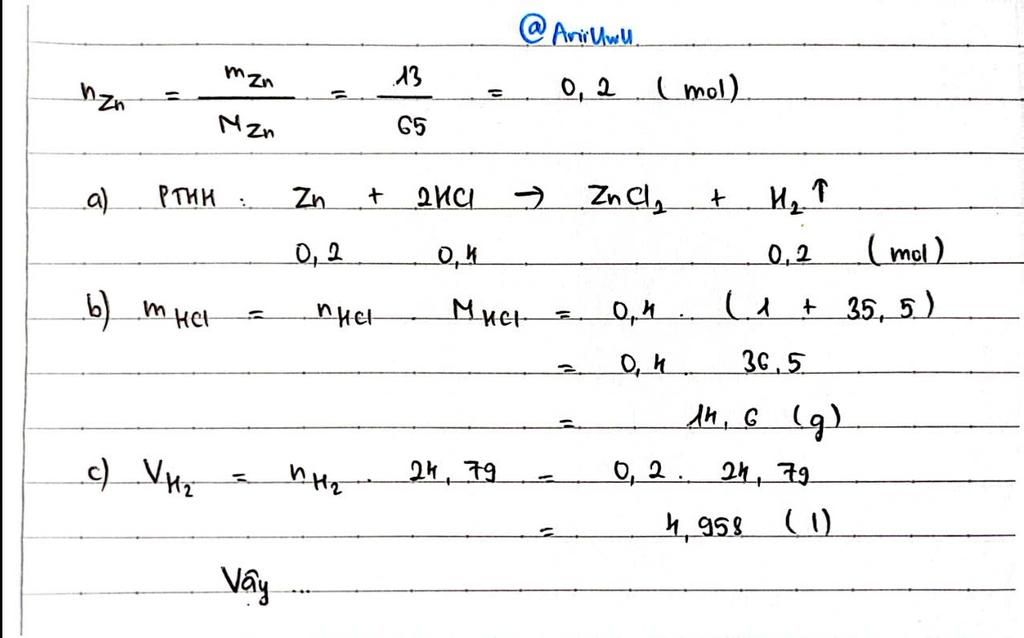 @AniiUwU
n_Zn = m_Zn / M_Zn = 13 / 65 = 0,2 (mol)
a) PTHH : Zn + 2HCl → ZnCl₂ + H₂↑
0,2 0,4 0,2 (mol)
b) m_HCl = n_HCl . M_HCl = 0,4 . (1 + 35,5)
= 0,4 . 36,5
= 14,6 (g)
c) V_H₂ = n_H₂ . 24,79 = 0,2 . 24,79
= 4,958 (l)
Vậy ...